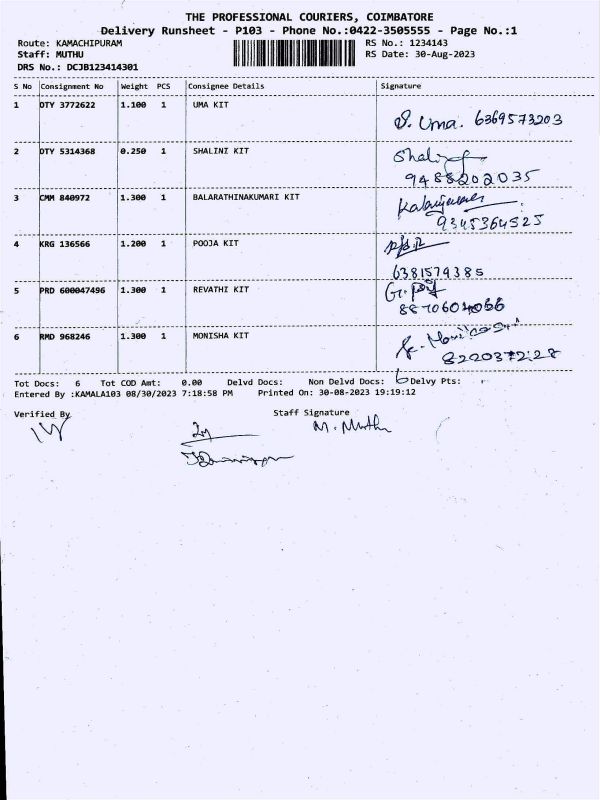 THE PROFESSIONAL COURIERS, COIMBATORE
Delivery Runsheet - P103 - Phone No.:0422-3505555 - Page No.:1
Route: KAMACHIPURAM RS No.: 1234143
Staff: MUTHU RS Date: 30-Aug-2023
DRS No.: DCJB123414301
S No Consignment No Weight PCS Consignee Details Signature
1 DTY 3772622 1.100 1 UMA KIT
S. Uma. 6369573203
2 DTY 5314368 0.250 1 SHALINI KIT
9488202035
3 CMM 840972 1.300 1 BALARATHINAKUMARI KIT
9345364525
4 KRG 136566 1.200 1 POOJA KIT
6381579385
5 PRD 600047496 1.300 1 REVATHI KIT
8870604066
6 RMD 968246 1.300 1 MONISHA KIT
8220372728
Tot Docs: 6 Tot COD Amt: 0.00 Delvd Docs: Non Delvd Docs: 6 Delvy Pts:
Entered By :KAMALA103 08/30/2023 7:18:58 PM Printed On: 30-08-2023 19:19:12
Verified By Staff Signature
M. Muthu